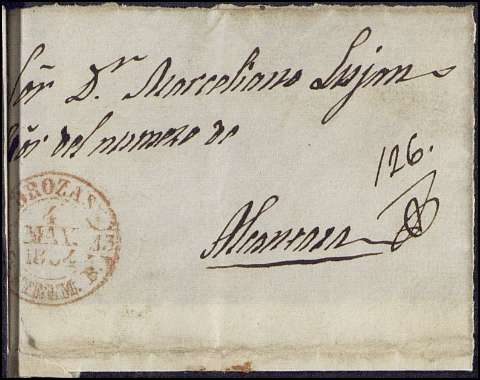 Sor Dn. Marceliano Lujan
del numero de
126.
Alcaraz
BROZAS
4
MAY.
1854
13
ESTREM. B.